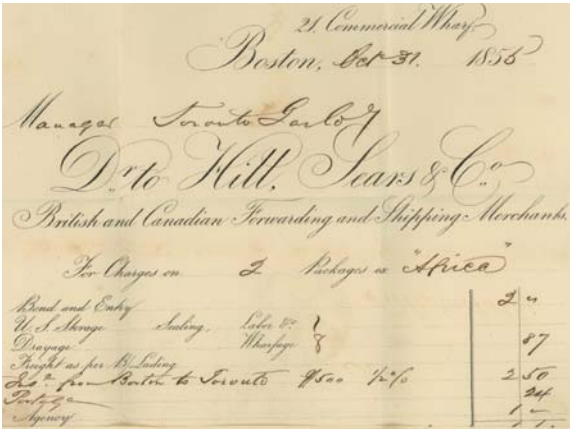 21. Commercial Wharf
Boston, Oct 31. 1855
Manager Toronto Gas Co
Dr. to Hill, Sears & Co.
British and Canadian Forwarding and Shipping Merchants.
For Charges on 2 Packages ex "Africa"
Bond and Entry 2 "
U. S. Storage Sealing, Labor &c.
Drayage Wharfage 87
Freight as per B/Lading
Ins. from Boston to Toronto $500 1/2 % 2 50
Postage 24
Agency 1 "